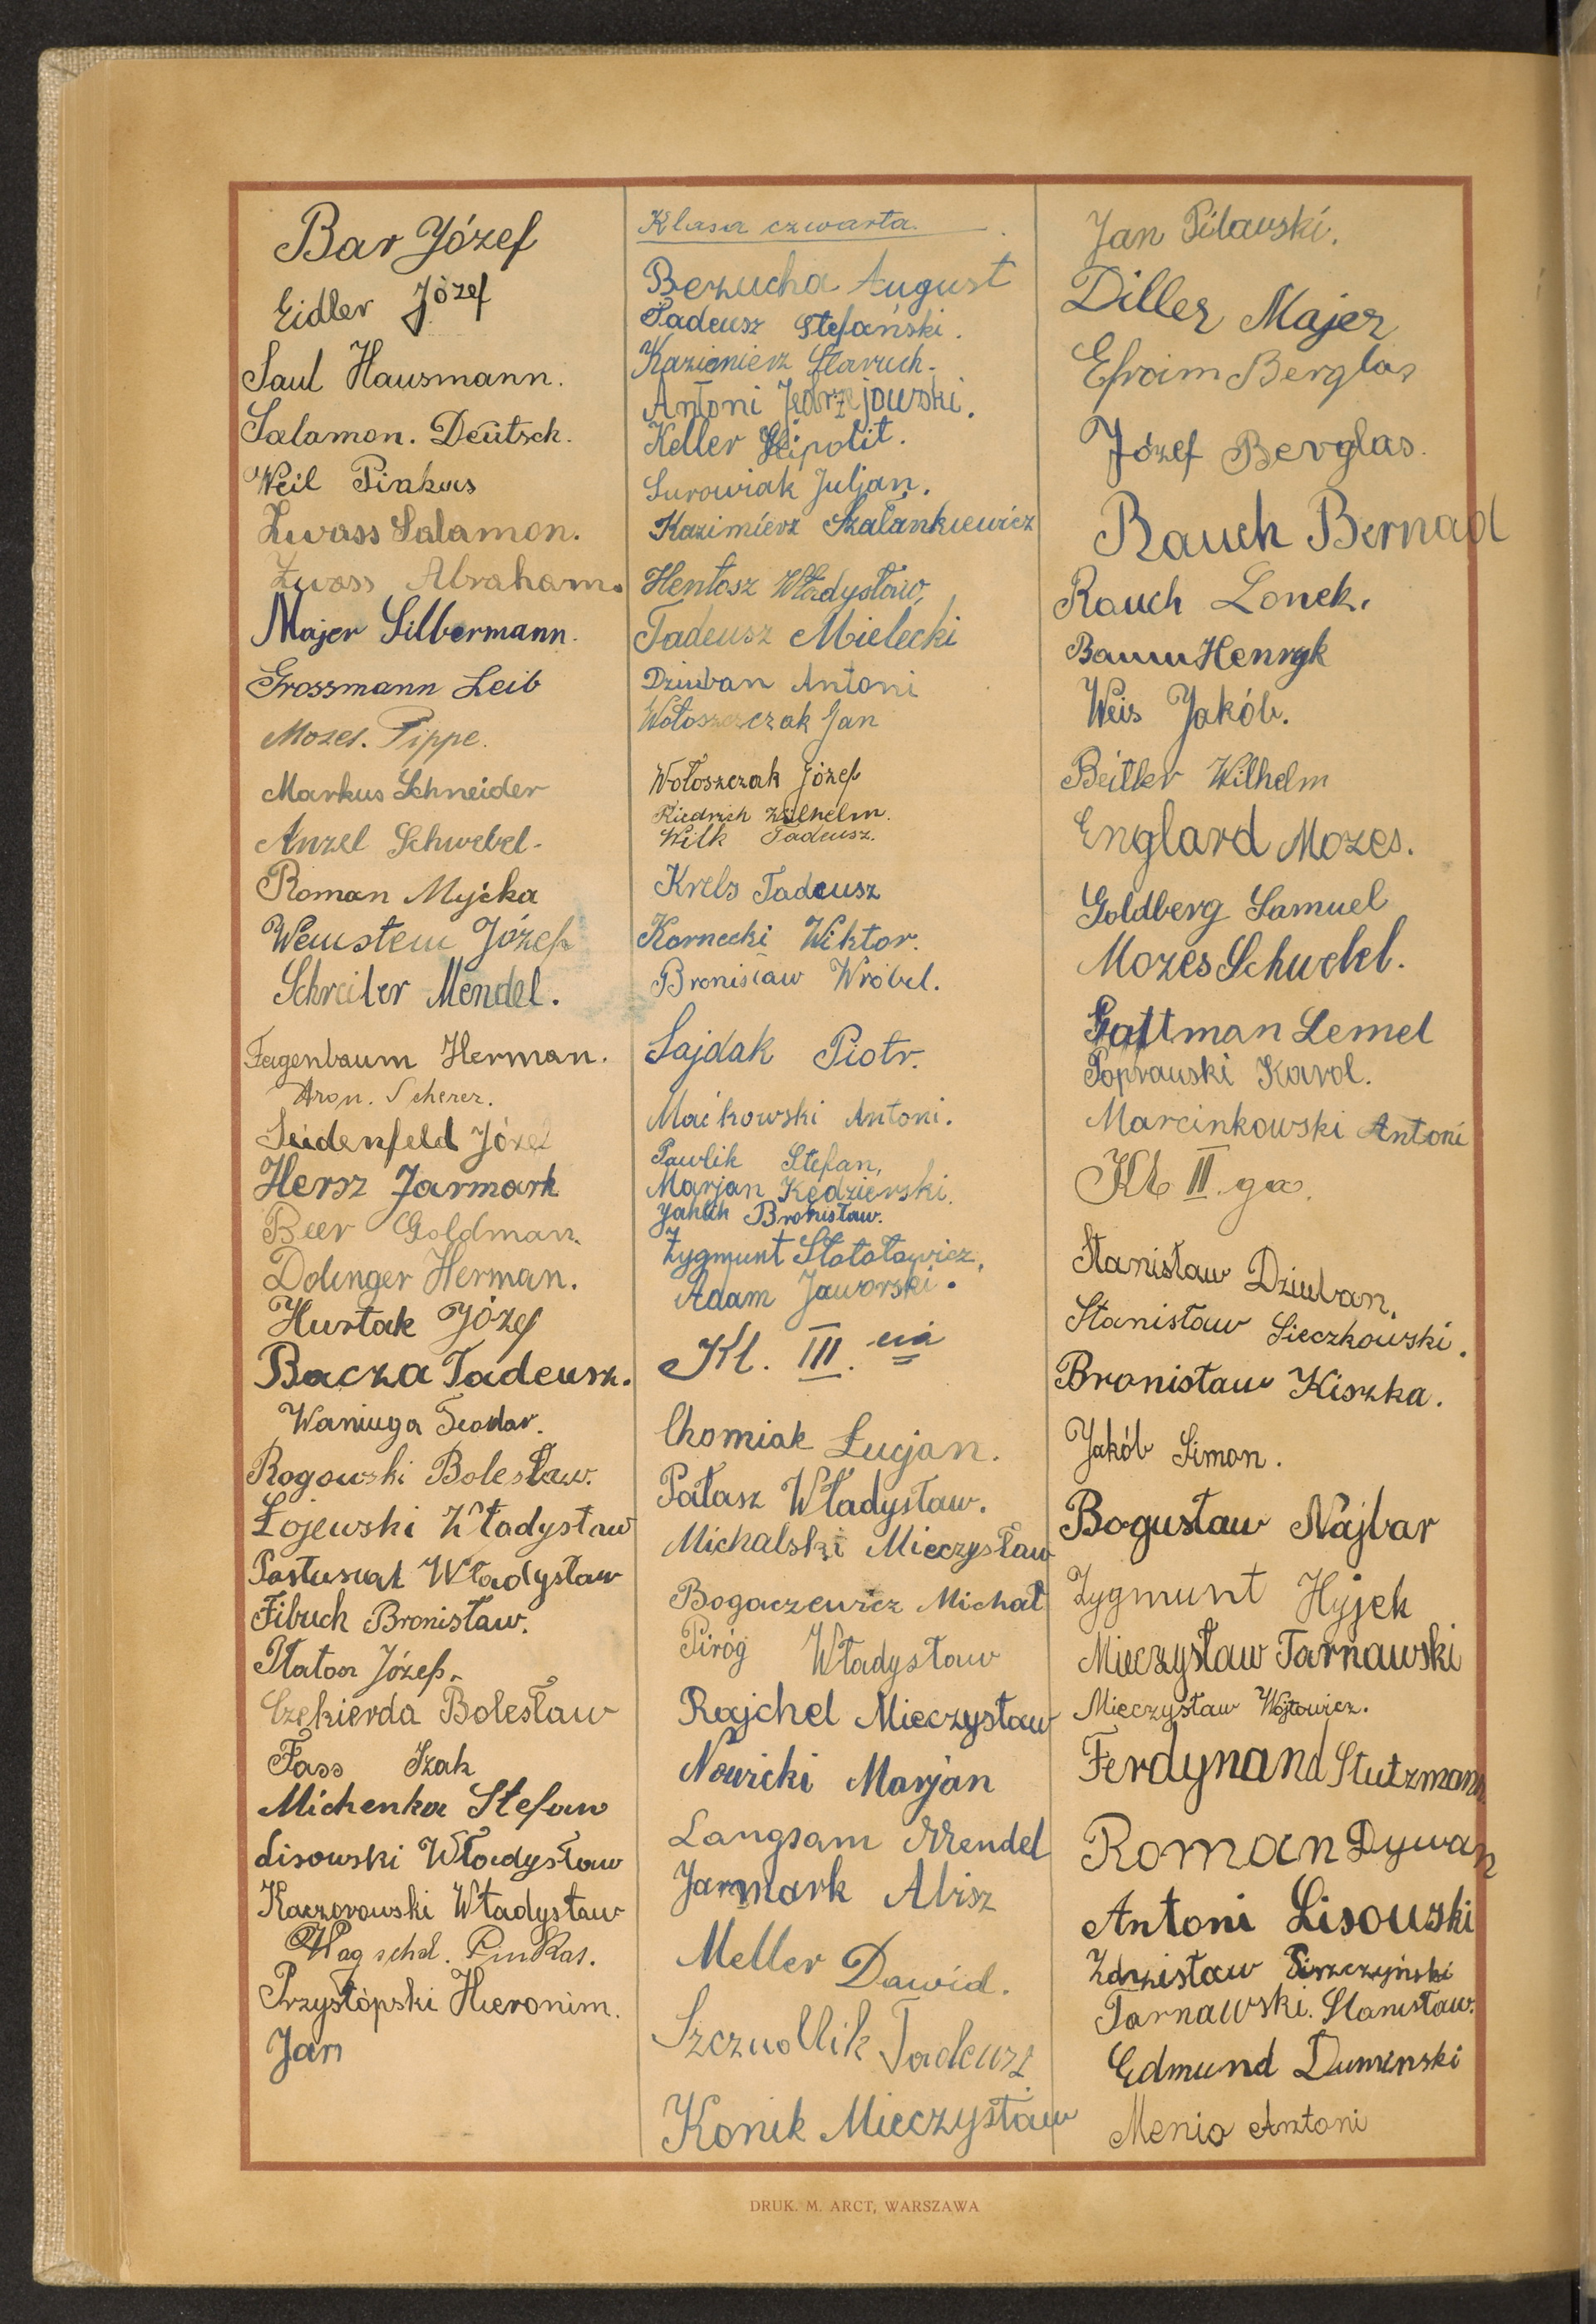 Bar Józef
Eidler Józef
Saul Hausmann.
Salamon. Deutsch.
Weil Pinkas
Zwass Salamon.
Zwass Abraham.
Majer Silbermann.
Grossmann Leib
Mozes. Pippe.
Markus Schneider
Anzel Schwebel.
Roman Myćka
Weinstein Józef
Schreiber Mendel.
Fagenbaum Herman.
Aron. Scherer.
Seidenfeld Józef
Hersz Jarmark
Beer Goldman.
Dolinger Herman.
Hurtak Józef
Bacza Tadeusz.
Waniuga Teodor.
Rogowski Bolesław.
Łojewski Władysław
Pastusiak Władysław
Fibuch Bronisław.
Płaton Józef.
Czekierda Bolesław
Fass Izak
Michenka Stefan
Lisowski Władysław
Kaczorowski Władysław
Wagschal. Pinkas.
Przystópski Hieronim.
Jan
Klasa czwarta.
Bezucha August
Tadeusz Stefański.
Kazimierz Staruch.
Antoni Jędrzejowski.
Keller Hipolit.
Surowiak Juljan.
Kazimierz Szałankiewicz
Hentosz Władysław,
Tadeusz Mielecki
Dziuban Antoni
Wołoszczak Jan
Wołoszczak Józef
Riedrich Wilhelm.
Wilk Tadeusz.
Krels Tadeusz
Kornecki Wiktor.
Bronisław Wróbel.
Sajdak Piotr.
Maćkowski Antoni.
Pawlik Stefan,
Marjan Kędzierski.
Jahlik Bronisław.
Zygmunt Stototowicz.
Adam Jaworski.
Kl. III. cia
Chomiak Łucjan.
Pałasz Władysław.
Michalski Mieczysław
Bogaczewicz Michał
Piróg Władysław
Rajchel Mieczysław
Nowicki Marjan
Langsam Mendel
Jarmark Abisz
Meller Dawid.
Szczudlik Tadeusz
Konik Mieczysław
Jan Pilawski.
Diller Majer
Efroim Berglas
Józef Berglas.
Rauch Bernad
Rauch Lonek.
Baum Henryk
Weis Jakób.
Beitler Wilhelm
Englard Mozes.
Goldberg Samuel
Mozes Schwebel.
Gattman Lemel
Poprawski Karol.
Marcinkowski Antoni
Kl. II. ga.
Stanisław Dziuban.
Stanisław Sieczkowski.
Bronisław Kiszka.
Jakób Simon.
Bogusław Najbar
Zygmunt Hyjek
Mieczysław Tarnawski
Mieczysław Wójtowicz.
Ferdynand Stutzmann
Roman Dywan
Antoni Lisowski
Zdzisław
Tarnawski. Stanisław.
Edmund
Menio Antoni
DRUK. M. ARCT, WARSZAWA